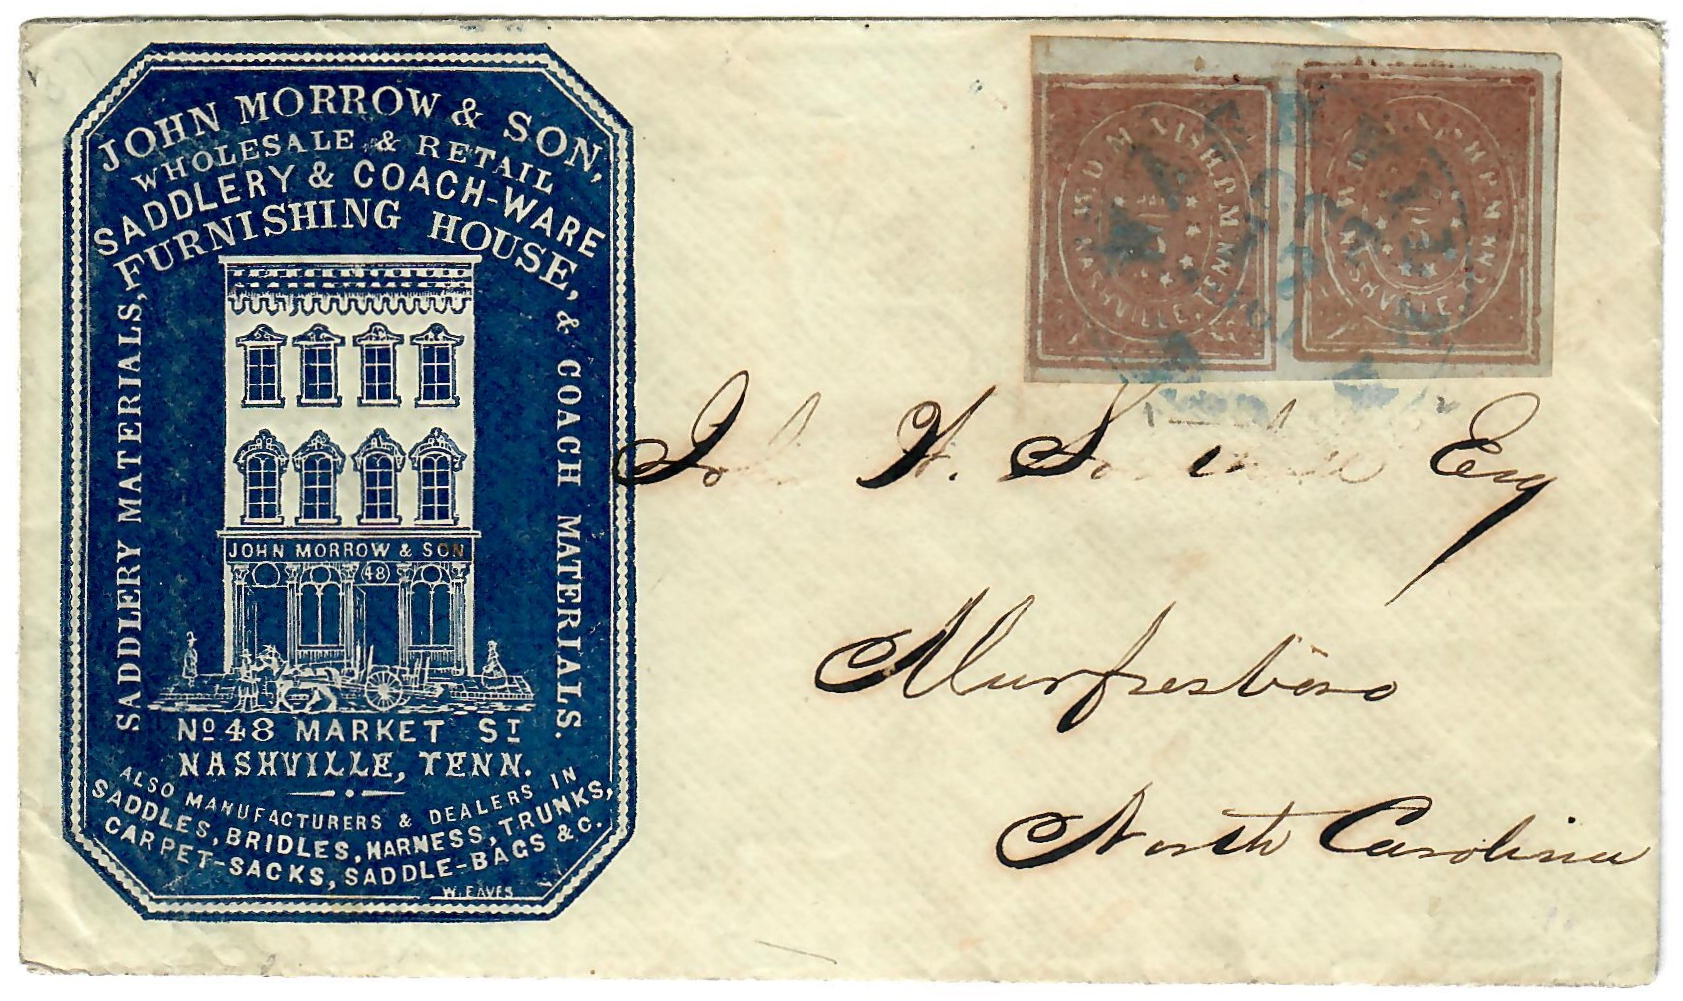 JOHN MORROW & SON,
WHOLESALE & RETAIL
SADDLERY & COACH-WARE
FURNISHING HOUSE,
SADDLERY MATERIALS,
& COACH MATERIALS.
JOHN MORROW & SON
48
No 48 MARKET ST
NASHVILLE, TENN.
ALSO MANUFACTURERS & DEALERS IN
SADDLES, BRIDLES, HARNESS, TRUNKS,
CARPET-SACKS, SADDLE-BAGS &C.
W. EAVES
NASHVILLE,
NASHVILLE,
John W. Esq
Murfresboro
North Carolina